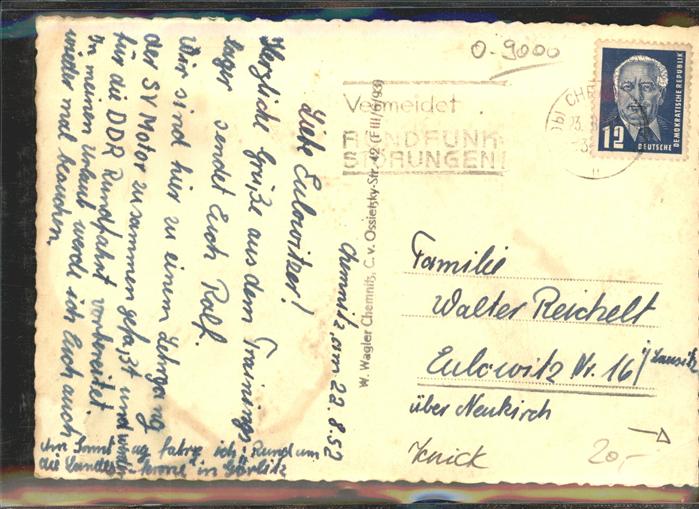 Chemnitz, am 22.8.52
Liebe Eulowitzer!
Herzliche Grüße aus dem Trainings-
lager sendet Euch Rolf.
Wir sind hier zu einem Lehrgang
der SV Motor zusammen gefaßt und werden
für die DDR Rundfahrt vorbereitet.
In meinen Urlaub werde ich Euch auch
wieder mal besuchen.
Am Sonntag fahre ich "Rund um
die Landeskrone" in Görlitz
W. Wagler Chemnitz, C. v. Ossietzky-Str. 42
O-9000
Vermeidet
RUNDFUNK-
STÖRUNGEN!
CHE
12
DEUTSCHE
DEMOKRATISCHE REPUBLIK
Familie
Walter Reichelt
Eulowitz Nr. 16 i/Lausitz
über Neukirch
Knick
20,-